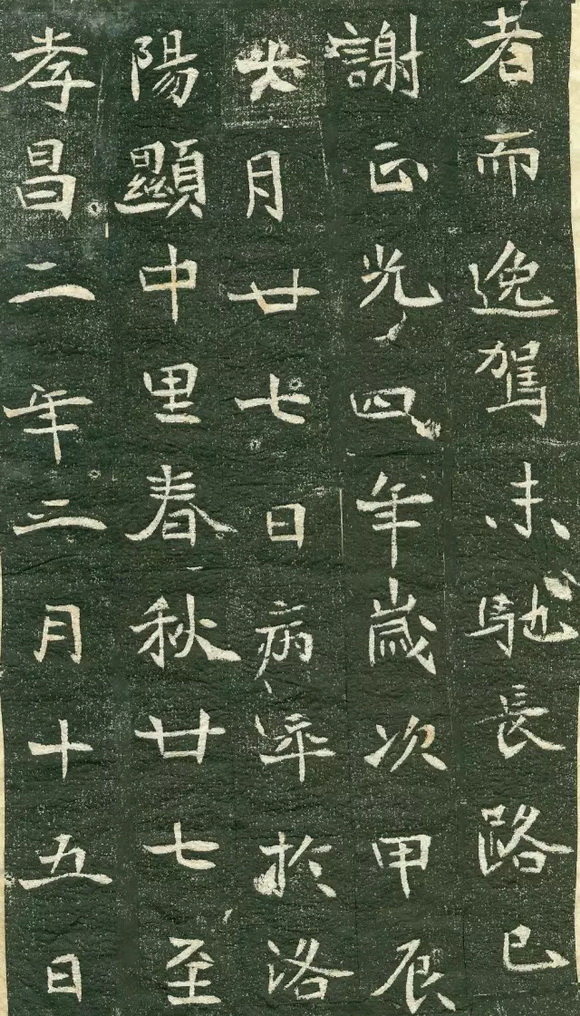 者而逸駕未馳長路已
謝正光四年歲次甲辰
月廿七日病卒於洛
陽顯中里春秋廿七至
孝昌二年三月十五日